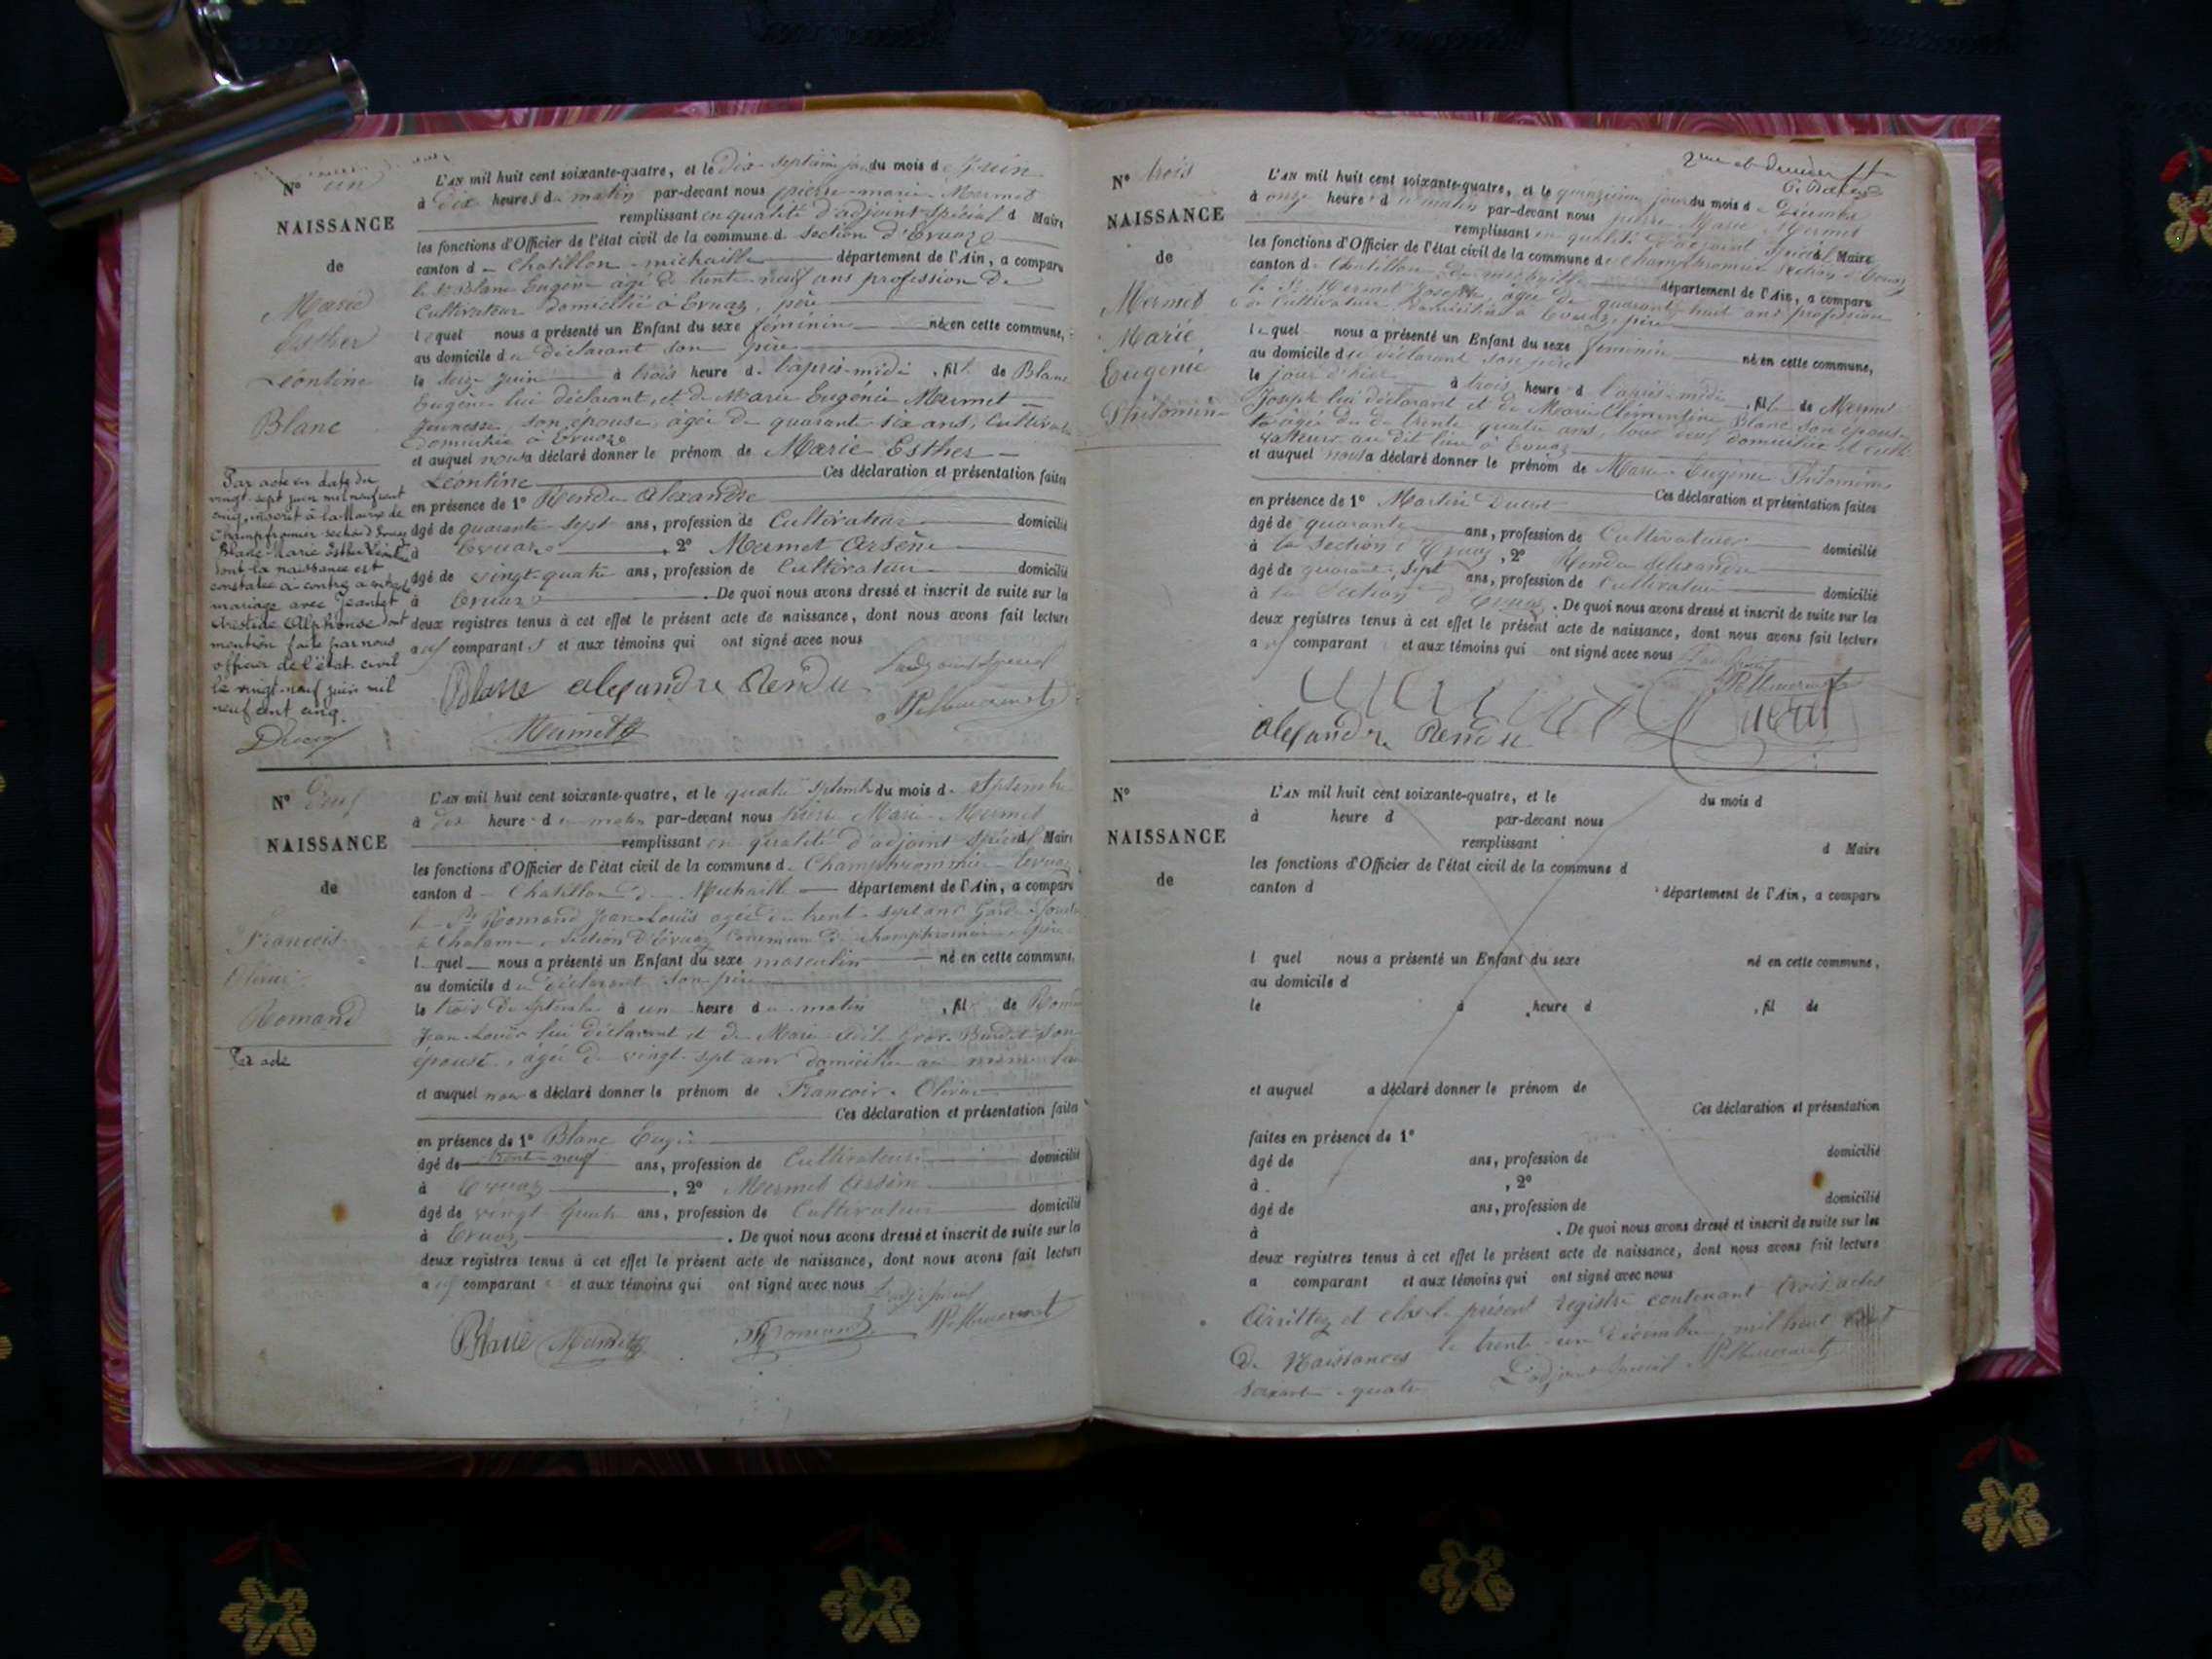 N° un
NAISSANCE
de
Marie
Esther
Léontine
Blanc
Par acte en date du
vingt-sept juin mil neuf cent
cinq, inscrit à la Mairie de
Champfromier section d'Evuaz
Blanc Marie Esther Léontine
dont la naissance est
constatée ci-contre a contracté
mariage avec Jeantet
Aristide Alphonse dont
mention faite par nous
officier de l'état civil
le vingt-neuf juin mil
neuf cent cinq.
L'AN mil huit cent soixante-quatre, et le dix septième jour du mois de Juin
à dix heures du matin par-devant nous pierre-marie Mermet
remplissant en qualité d'adjoint spécial d Maire
les fonctions d'Officier de l'état civil de la commune d. Section d'Evuaz
canton d - Chatillon - michaille département de l'Ain, a comparu
le Sr Blanc Eugène agé de trente neuf ans profession de
Cultivateur domicilié à Evuaz, père
lequel nous a présenté un Enfant du sexe féminin né en cette commune,
au domicile du déclarant son père
le Seize juin à trois heure d. l'après-midi , fil de Blanc
Eugène lui déclarant, et de Marie Eugénie Mermet
Jeunesse, son épouse, agée de quarante six ans, Cultivatrice
Domiciliée à Evuaz
et auquel nous a déclaré donner le prénom de Marie Esther
Léontine Ces déclaration et présentation faites
en présence de 1° Rendu Alexandre
âgé de quarante-sept ans, profession de Cultivateur domicilié
à Evuaz , 2° Mermet Arsène
âgé de vingt-quatre ans, profession de Cultivateur domicilié
à Evuaz . De quoi nous avons dressé et inscrit de suite sur les
deux registres tenus à cet effet le présent acte de naissance, dont nous avons fait lecture
aux comparants et aux témoins qui ont signé avec nous
L'adjoint spécial
Blanc alexandre Rendu
Mermet
N° Deux
NAISSANCE
de
François
Olivier
Romand
Par acte
L'AN mil huit cent soixante-quatre, et le quatre septembre du mois d. Septembre
à dix heure d u matin par-devant nous Pierre Marie Mermet
remplissant en qualité d'adjoint spécial d Maire
les fonctions d'Officier de l'état civil de la commune d. Champfrommier Evuaz
canton d - Chatillon de Michaille département de l'Ain, a comparu
le Sr Romand Jean-Louis agée de trente-sept ans Garde-
à Section D'Evuaz Commune de Champfromier père
l quel nous a présenté un Enfant du sexe masculin né en cette commune,
au domicile du déclarant son père
le trois de septembre à un heure du matin , fil de Romand
Jean-Louis lui déclarant et de Marie
épouse, agée de vingt-sept ans domiciliée au même lieu
et auquel nous a déclaré donner le prénom de François Olivier
Ces déclaration et présentation faites
en présence de 1° Blanc Eugène
âgé de trente-neuf ans, profession de Cultivateur domicilié
à Evuaz , 2° Mermet Arsène
âgé de vingt-quatre ans, profession de Cultivateur domicilié
à Evuaz . De quoi nous avons dressé et inscrit de suite sur les
deux registres tenus à cet effet le présent acte de naissance, dont nous avons fait lecture
aux comparant et aux témoins qui ont signé avec nous
Blanc Mermet Romand
N° trois
NAISSANCE
de
Mermet
Marie
Eugénie
Philomène
2me et dernier
L'AN mil huit cent soixante-quatre, et le quinzième jour du mois de Décembre
à onze heure d u matin par-devant nous pierre Marie Mermet
remplissant en qualité d'adjoint spécial Maire
les fonctions d'Officier de l'état civil de la commune de Champfromier Section d'Evuaz
canton d. Chatillon de michaille département de l'Ain, a comparu
le Sr Mermet Joseph, agée de quarante huit ans profession
de Cultivateur domicilié à Evuaz, père
lequel nous a présenté un Enfant du sexe féminin né en cette commune,
au domicile du déclarant son père
le jour d'hier à trois heure d l'après-midi , fil de Mermet
Joseph lui déclarant et de Marie Clémentine Blanc son épouse
agée de trente quatre ans, tous deux domiciliés et
au dit lieu à Evuaz
et auquel nous a déclaré donner le prénom de Marie Eugénie Philomène
Ces déclaration et présentation faites
en présence de 1° Martin Ducret
âgé de quarante ans, profession de Cultivateur domicilié
à la Section d'Evuaz , 2° Rendu Alexandre
âgé de quarante-sept ans, profession de Cultivateur domicilié
à la Section d'Evuaz . De quoi nous avons dressé et inscrit de suite sur les
deux registres tenus à cet effet le présent acte de naissance, dont nous avons fait lecture
aux comparant et aux témoins qui ont signé avec nous
Ducret
alexandre Rendu
N°
NAISSANCE
de
L'AN mil huit cent soixante-quatre, et le du mois d
à heure d par-devant nous
remplissant d Maire
les fonctions d'Officier de l'état civil de la commune d
canton d département de l'Ain, a comparu
l quel nous a présenté un Enfant du sexe né en cette commune,
au domicile d
le à heure d , fil de
et auquel a déclaré donner le prénom de
Ces déclaration et présentation
faites en présence de 1°
âgé de ans, profession de domicilié
à , 2°
âgé de ans, profession de domicilié
à . De quoi nous avons dressé et inscrit de suite sur les
deux registres tenus à cet effet le présent acte de naissance, dont nous avons fait lecture
a comparant et aux témoins qui ont signé avec nous
Arrêttez et clos le présent registre contenant trois actes
De Naissances le trente-un Décembre mil huit cent
soixante-quatre L'adjoint spécial